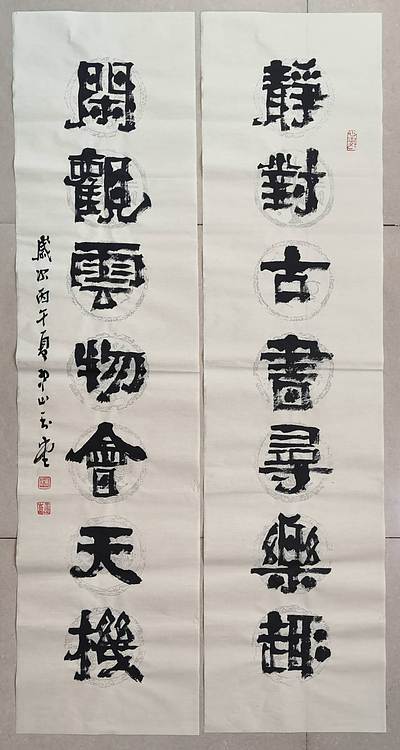 靜對古書尋樂趣
閑觀雲物會天機
歲次丙午夏